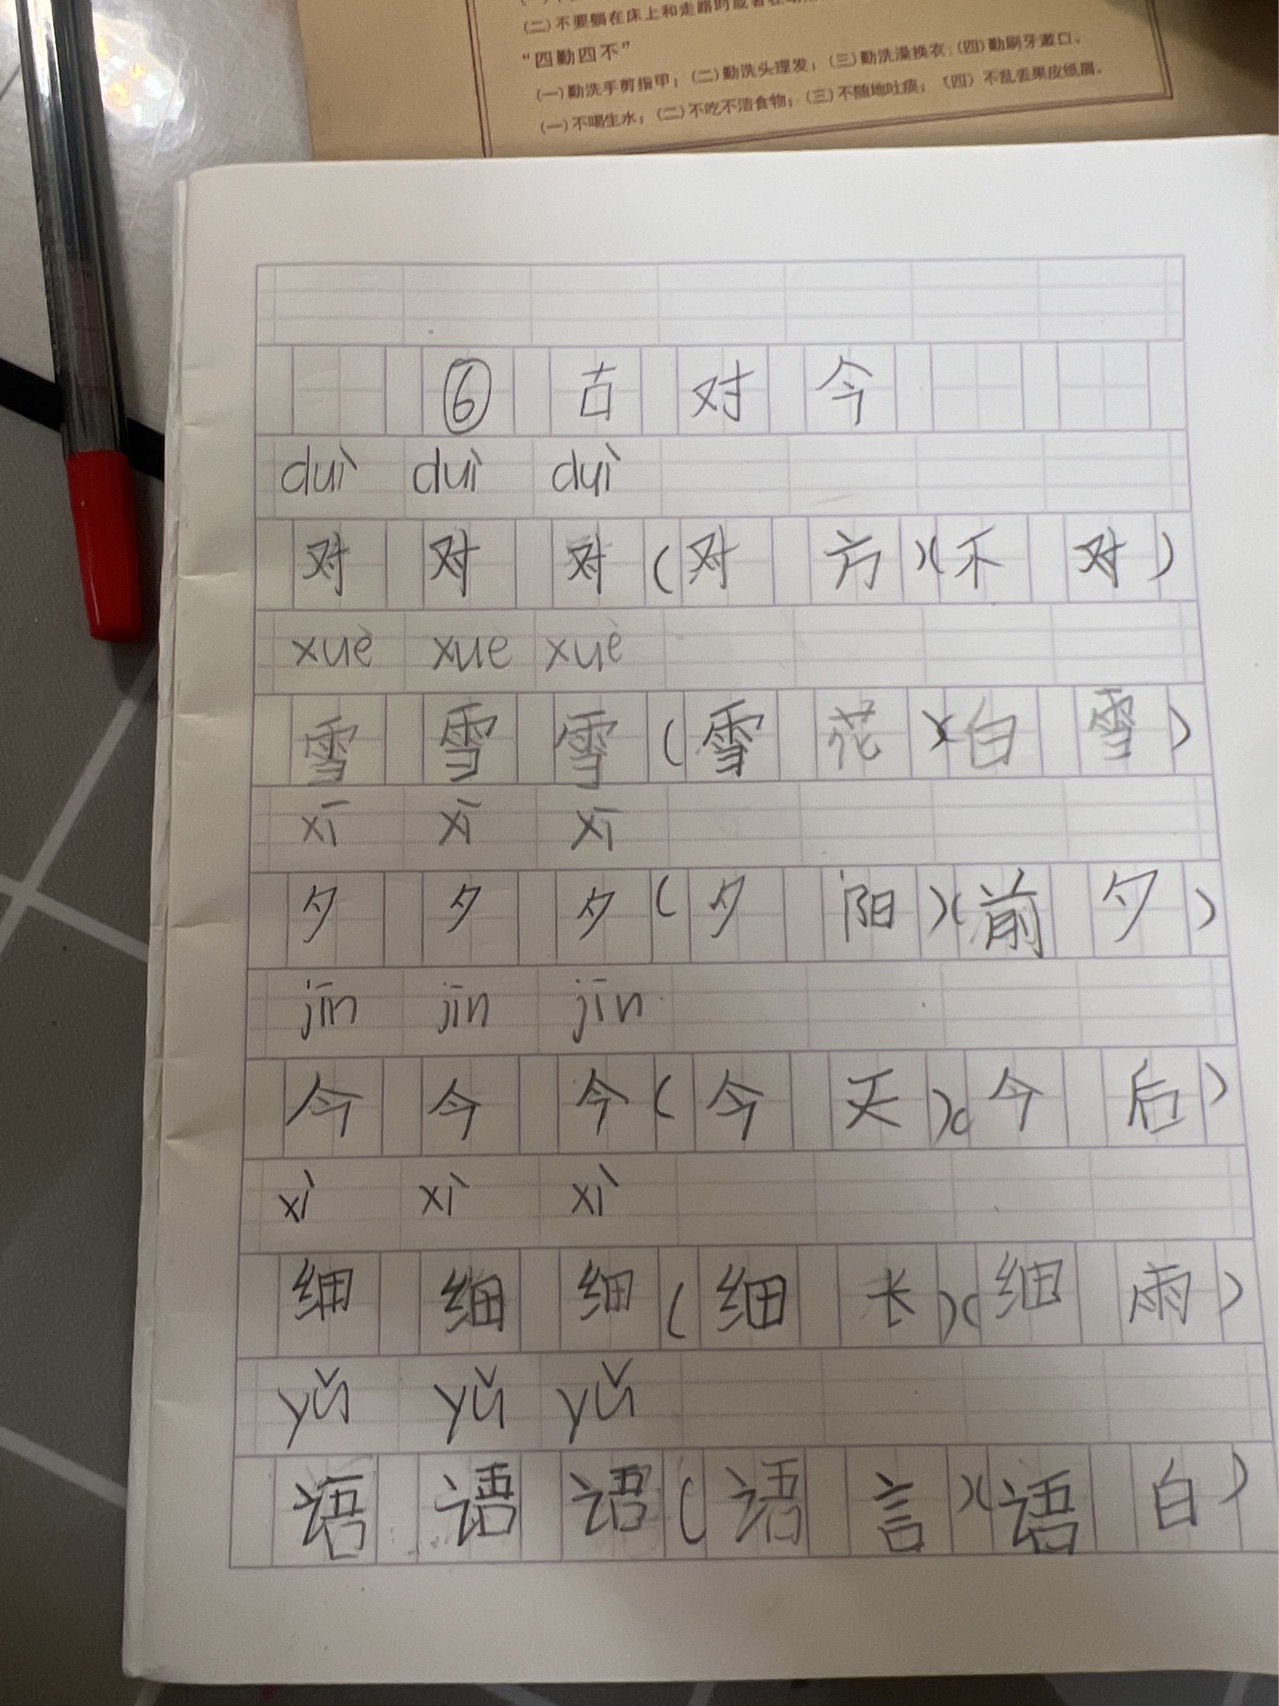 (二)不要躺在床上和走路时或者在动
“四勤四不”
(一)勤洗手剪指甲；(二)勤洗头理发；(三)勤洗澡换衣；(四)勤刷牙漱口。
(一)不喝生水；(二)不吃不洁食物；(三)不随地吐痰；(四)不乱丢果皮纸屑。
⑥古对今
duì duì duì
对对对(对方)(不对)
xuè xue xuè
雪雪雪(雪花)(白雪)
xī xī xī
夕夕夕(夕阳)(前夕)
jīn jīn jīn
今今今(今天)(今后)
xì xì xì
细细细(细长)(细雨)
yǔ yǔ yǔ
语语语(语言)(语白)